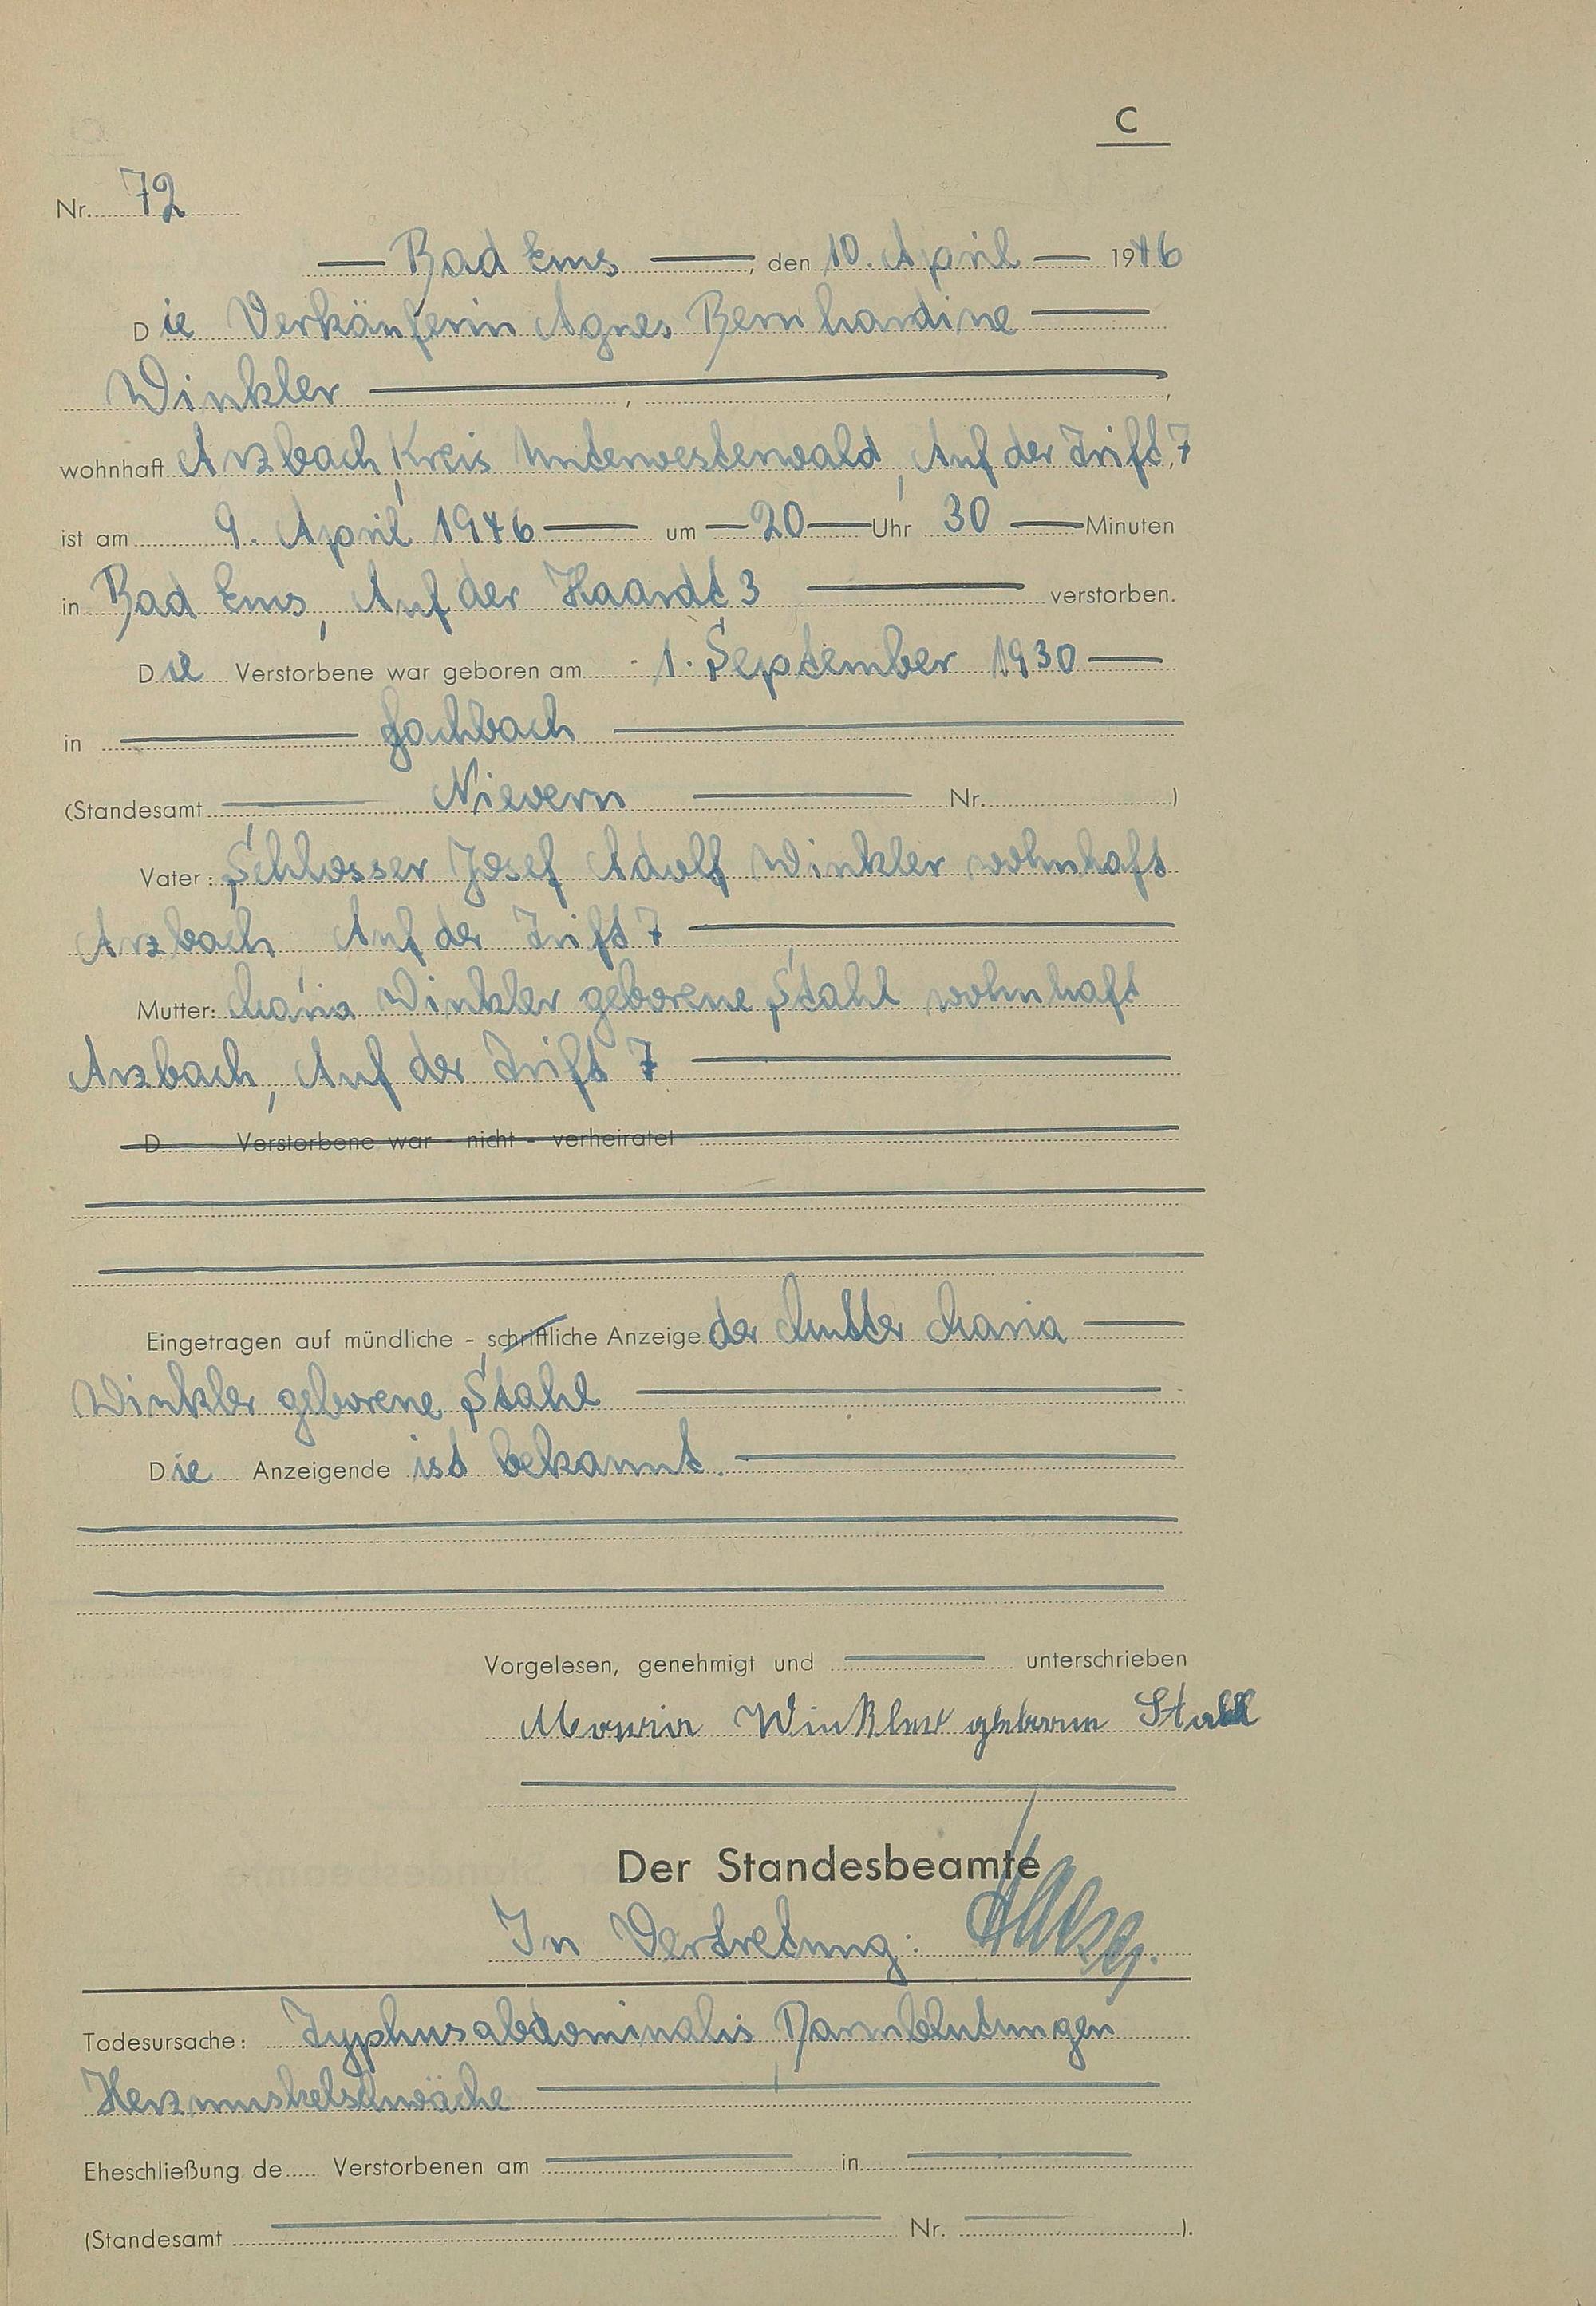 C
Nr. 72
Bad Ems, den 10. April 1946
Die Verkäuferin Agnes Bernhardine
Winkler , ,
wohnhaft Arzbach, Kreis Unterwesterwald, Auf der Trift, 7
ist am 9. April 1946 um 20 Uhr 30 Minuten
in Bad Ems, Auf der Haardt 3 verstorben.
Die Verstorbene war geboren am 1. September 1930
in Fachbach
(Standesamt Nievern Nr. )
Vater: Schlosser Josef Adolf Winkler wohnhaft
Arzbach Auf der Trift 7
Mutter: Maria Winkler geborene Stahl wohnhaft
Arzbach, Auf der Trift 7
D Verstorbene war - nicht - verheiratet
Eingetragen auf mündliche - schriftliche Anzeige der Mutter Maria
Winkler geborene Stahl
Die Anzeigende ist bekannt.
Vorgelesen, genehmigt und unterschrieben
Maria Winkler geborne Stahl
Der Standesbeamte
In Vertretung:
Todesursache: Typhus abdominalis, Darmblutungen
Herzmuskelschwäche
Eheschließung de Verstorbenen am in
(Standesamt Nr. ).